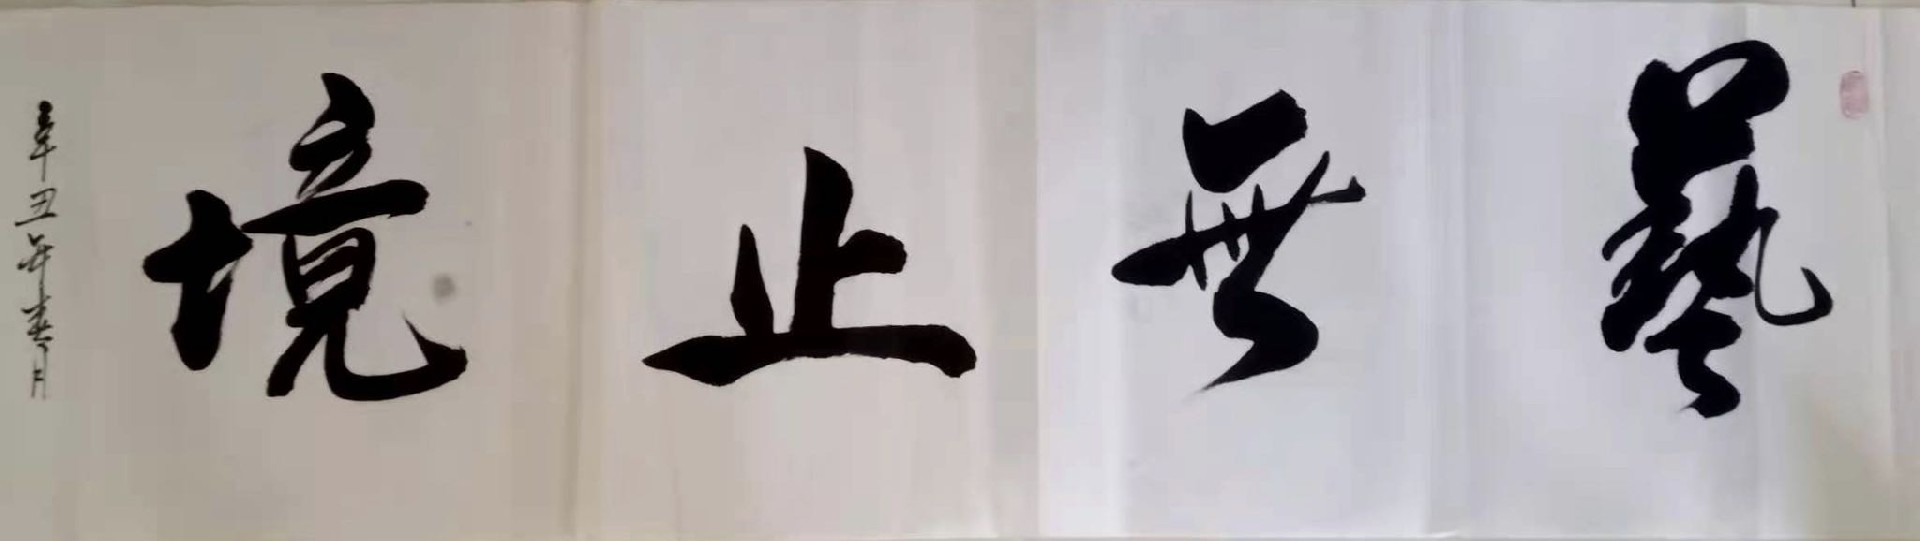 藝無止境
辛丑年春月